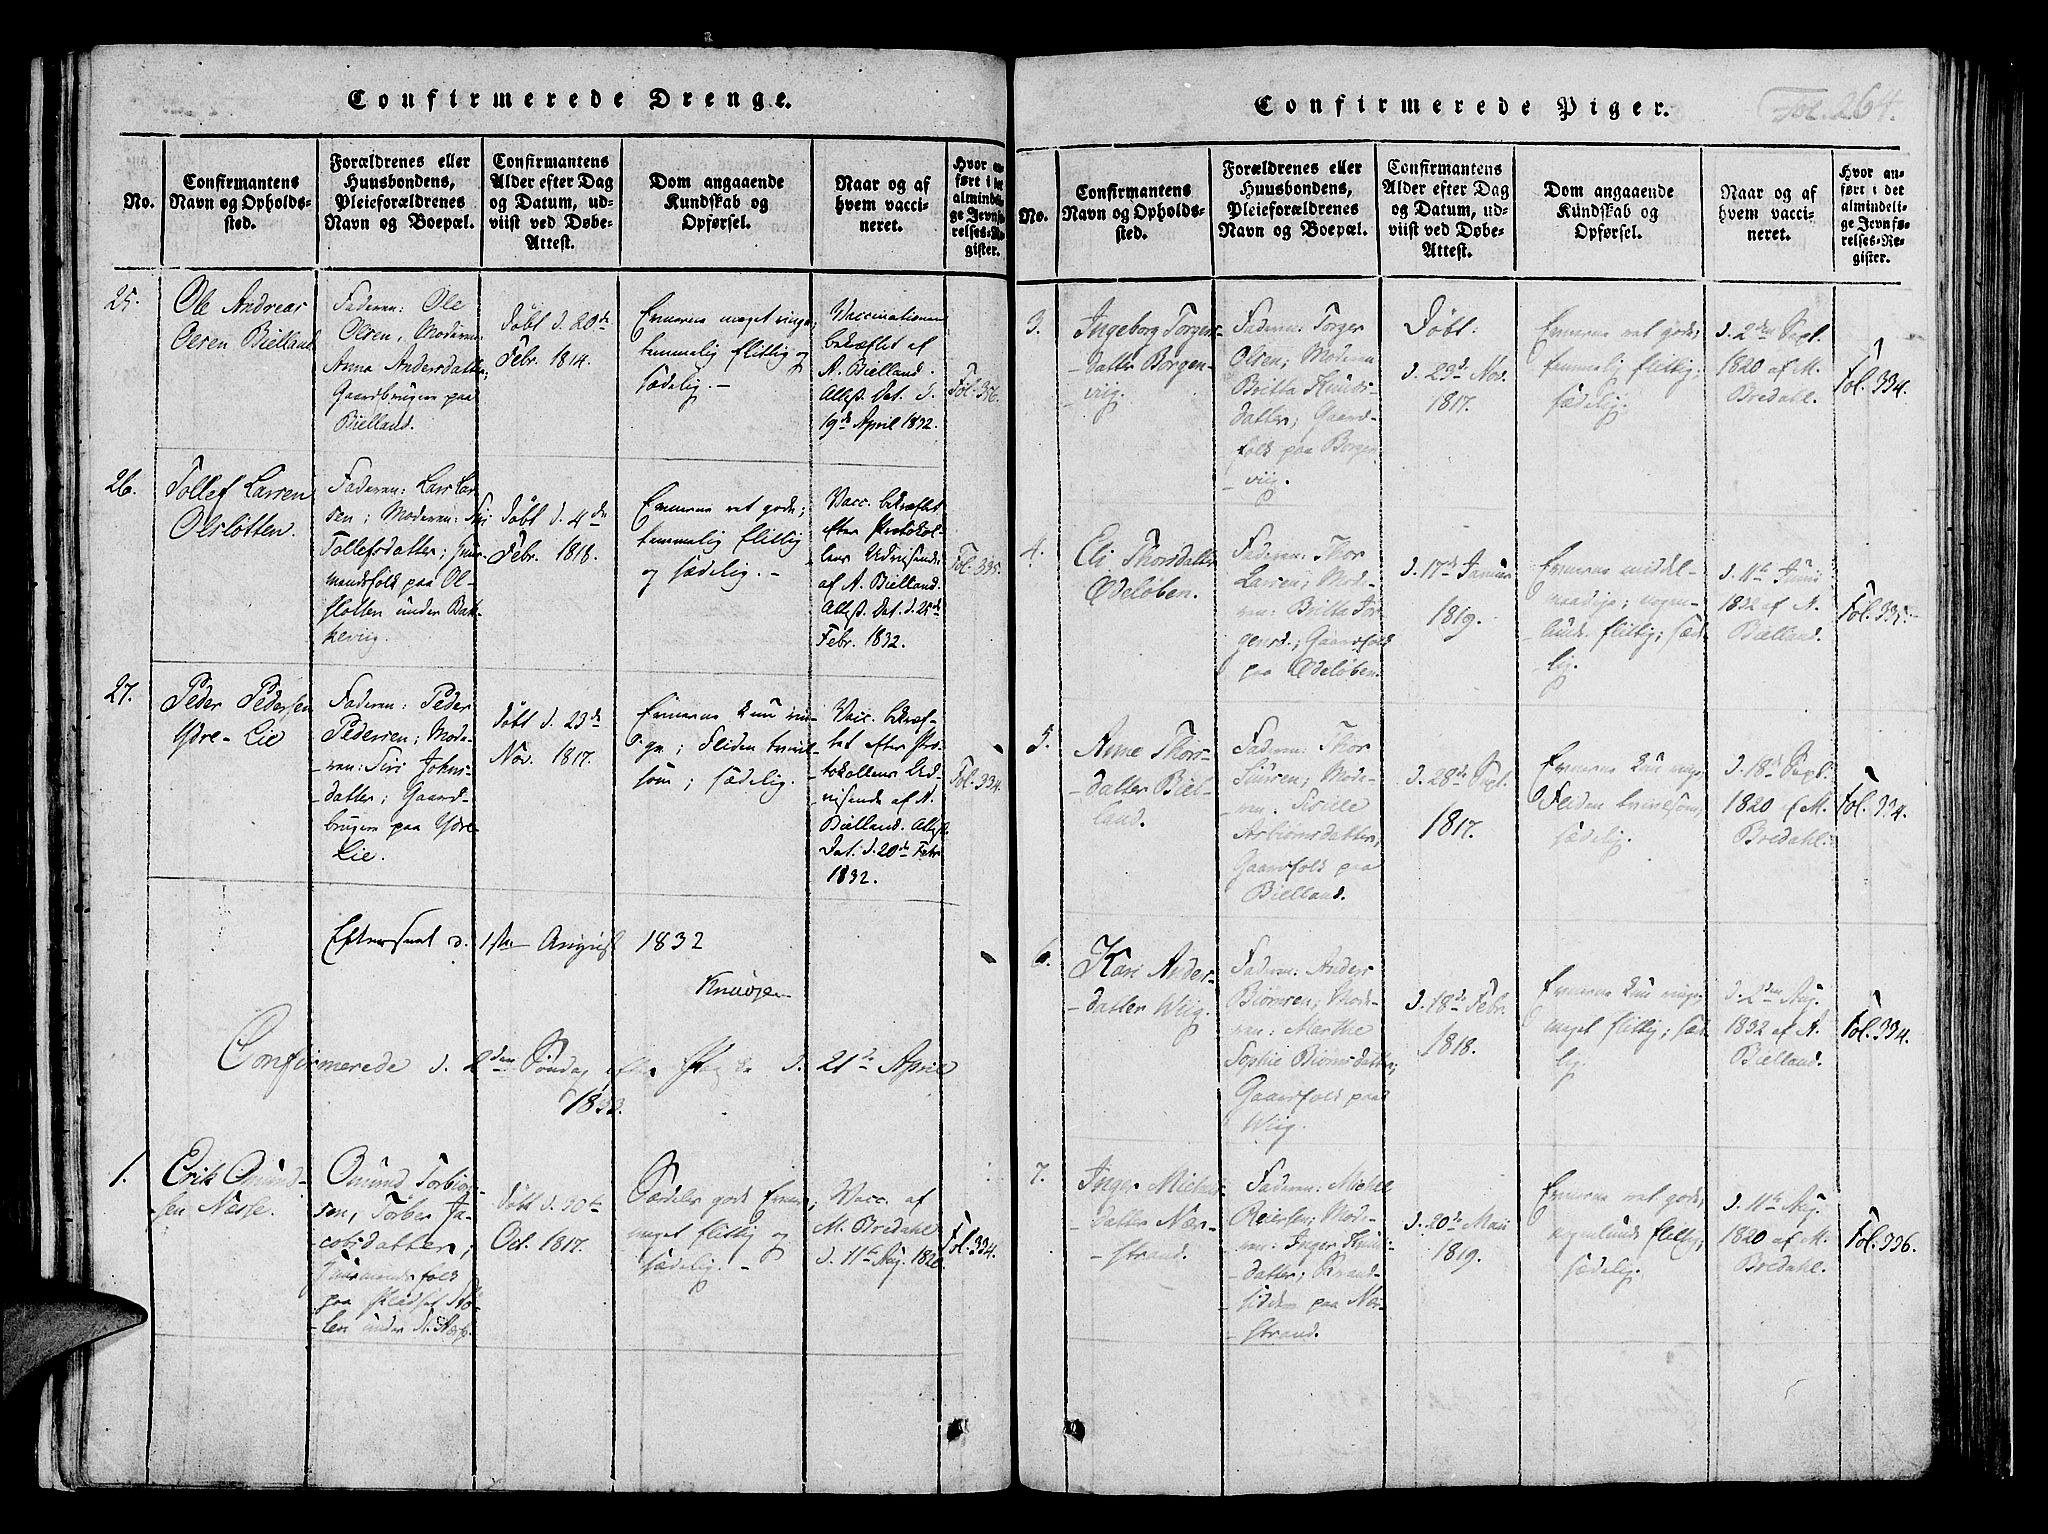 Confirmerede Drenge.
No.
Confirmantens
Navn og Opholds-
sted.
Forældrenes eller
Huusbondens,
Pleieforældrenes
Navn og Boepæl.
Confirmantens
Alder efter Dag
og Datum, ud-
viist ved Døbe-
Attest.
Dom angaaende
Kundskab og
Opførsel.
Naar og af
hvem vacci-
neret.
Hvor an-
ført i det
almindeli-
ge Jevnfø-
relses-Re-
gister.
25.
Ole Andreas
Olsen Bielland
Faderen: Ole
Olsen, Moderen
Anna Andersdatter;
Gaardbrugere paa
Bielland.
døbt d. 20de
Febr. 1814.
Evnerne meget ringe;
temmelig flittig og
sædelig.-
Vaccinationen
bekræftet af
A. Bielland.
Attest. Dat. d.
19de April 1832.
Fol. 336.
26.
Tollef Larsen
Olsløtten.
Faderen: Lars Lar-
sen; Moderen: Siri
Tollefsdatter; Huus-
mandsfolk paa Ol-
sløtten under Bak-
keviig.
døbt d. 4de
Febr. 1818.
Evnerne ret gode;
temmelig flittig
og sædelig.-
Vacc. bekræftet
efter Protokol-
lens Udvisende
af A. Bielland.
Attest. Dat. d. 25de
Febr. 1832.
Fol. 335.
27.
Peder Pedersen
Ydre-Lie
Faderen: Peder
Pedersen; Mode-
ren: Siri Johns-
datter; Gaard-
brugere paa Ydre-
Lie.
døbt d. 23de
Nov. 1817.
Evnerne kun rin-
ge; Fliden tvivl-
som; sædelig.
Vacc. bekræf-
tet efter Pro-
tokollens Ud-
visende af A.
Bielland. Attest.
Dat. d. 20de Febr.
1832.
Fol. 334.
Efterseet d. 1ste August 1832
Confirmerede d. 2den Søndag efter Paaske d. 21de April
1833.
1.
Erik Omund-
sen Nesse.
Omund Torbiør-
sen, Torber Ja-
cobsdatter;
Huusmandsfolk
paa Pladset
under N. Nesse.
døbt d. 30te
Oct. 1817.
Særdeles gode Evner;
meget flittig og
sædelig.-
Vacc. af
M. Bredahl
d. 11te Aug. 1820
Fol. 334.
Confirmerede Piger.
Fol. 264.
No.
Confirmantens
Navn og Opholds-
sted.
Forældrenes eller
Huusbondens,
Pleieforældrenes
Navn og Boepæl.
Confirmantens
Alder efter Dag
og Datum, ud-
viist ved Døbe-
Attest.
Dom angaaende
Kundskab og
Opførsel.
Naar og af
hvem vacci-
neret.
Hvor an-
ført i det
almindeli-
ge Jevnfø-
relses-Re-
gister.
3.
Ingeborg Torgers-
datter Borgen-
viig.
Faderen: Torger
Olsen; Moderen
Britta Knuds-
datter; Gaard-
folk paa Borgen-
viig.
Døbt.
d. 23de Nov.
1817.
Evnerne ret gode;
temmelig flittig;
sædelig.
d. 2den Sept.
1820 af M.
Bredahl.
Fol. 334.
4.
Eli Thorsdatter
Ødeløben.
Faderen: Thor
Larsen; Mode-
ren: Britta Tor-
gersd.; Gaardfolk
paa Ødeløben.
d. 17de Januar
1819.
Evnerne middel-
maadige; nogen-
lunde flittig; sæde-
lig.
d. 11te Juni
1832 af A.
Bielland.
Fol. 335.
5.
Anne Thors-
datter Biel-
land.
Faderen: Thor
Siursen; Mode-
ren: Sirille
Asbiørnsdatter;
Gaardfolk paa
Bielland.
d. 28de Sept.
1817.
Evnerne kun ringe;
Fliden tvivlsom;
sædelig.
d. 18de Sept.
1820 af M.
Bredahl.
Fol. 334.
6.
Kari Anders-
datter Wiig.
Faderen: Anders
Biørnsen; Mode-
ren: Marthe
Sophie Biørnsdatter;
Gaardfolk paa
Wiig.
d. 18de Febr.
1818.
Evnerne kun ringe;
meget flittig; sæde-
lig.
d. 2den Aug.
1832 af A.
Bielland.
Fol. 334.
7.
Inger Michels-
datter Nær-
strand.
Faderen: Michel
Reiersen; Mode-
ren: Inger Knuds-
datter; Strand-
sidder paa Nær-
strand.
d. 20de Mai
1819.
Evnerne ret gode;
nogenlunde flittig;
sædelig.
d. 11te Aug.
1820 af M.
Bredahl.
Fol. 336.